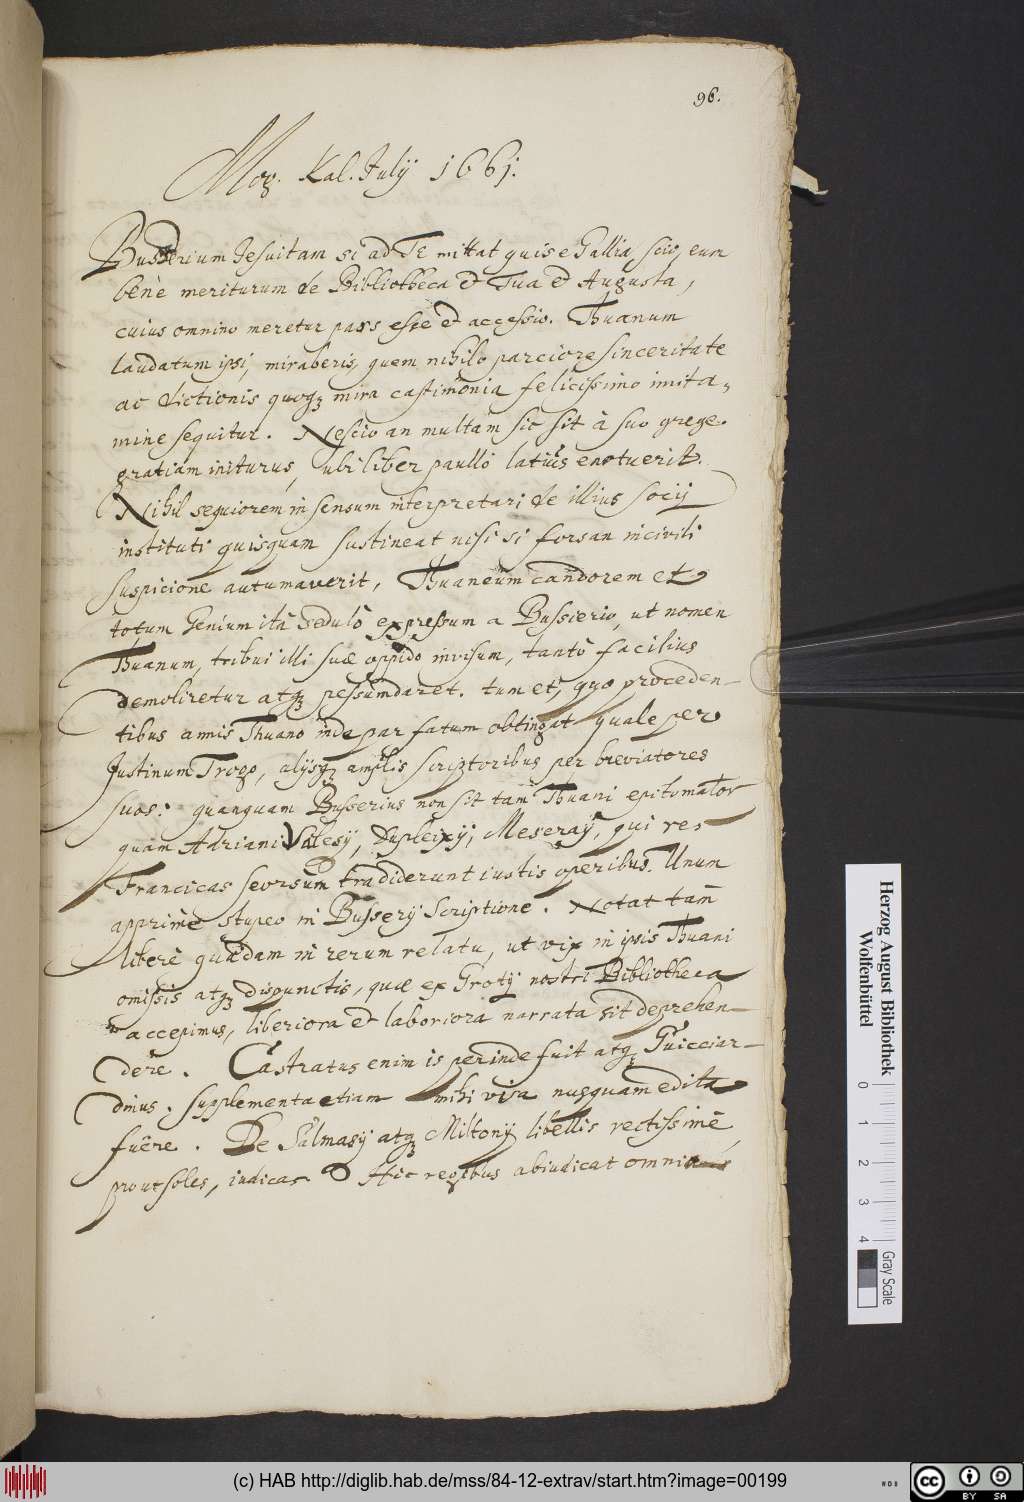 96.
Mog. Kal. Julij 1661.
Bussierium Jesuitam si ad TE mittat quis e Gallia, scio, eum
bene meriturum de Bibliotheca et Tua et Augusta,
cuius omnino meretur pars esse et accessio. Thuanum
laudatum ipsi, miraberis, quem nihilo parciore sinceritate
ac dictionis quoq; mira castimonia felicissimo imita-
mine sequitur. Nescio an multam sic sit à suo grege
gratiam initurus, ubi liber paullo latius enotuerit.
Nihil sequiorem in sensum interpretari de illius socij
instituti quisquam sustineat nisi si forsan incivili
suspicione autumaverit, Thuaneum candorem et
totum Genium ita sedulò expressum a Bussierio, ut nomen
Thuanum, tribui illi suae oppido invisum, tantò facilius
demoliretur atq; pessumdaret. tum et, quo proceden-
tibus annis Thuano inde par fatum obtingat quale per
Justinum Trogo, alijsq; amplis scriptoribus per breviatores
suos: quanquam Busserius non sit tam Thuani epitomator
quàm Adriani Valesij, Dupleixij, Meseraÿ, qui res
Francicas seorsum tradiderunt iustis operibus. Unum
apprime stupeo in Busserij Scriptione. Notat tam
liberè quaedam in rerum relatu, ut vix in ipsis Thuani
omissis atq; dispunctis, quae ex Grotij nostri Bibliotheca
accepimus, liberiora et laboriora narrata sit deprehen-
dere. Castratus enim is perinde fuit atq; Guicciar-
dinus; supplementa etiam mihi visa nusquam edita
fuêre. De Salmasij atq; Miltonij libellis rectissimè,
prout soles, iudicas. Hic regibus abiudicat omnia
Herzog August Bibliothek
Wolfenbüttel
0 1 2 3 4
Gray Scale
(c) HAB http://diglib.hab.de/mss/84-12-extrav/start.htm?image=00199
cc BY SA